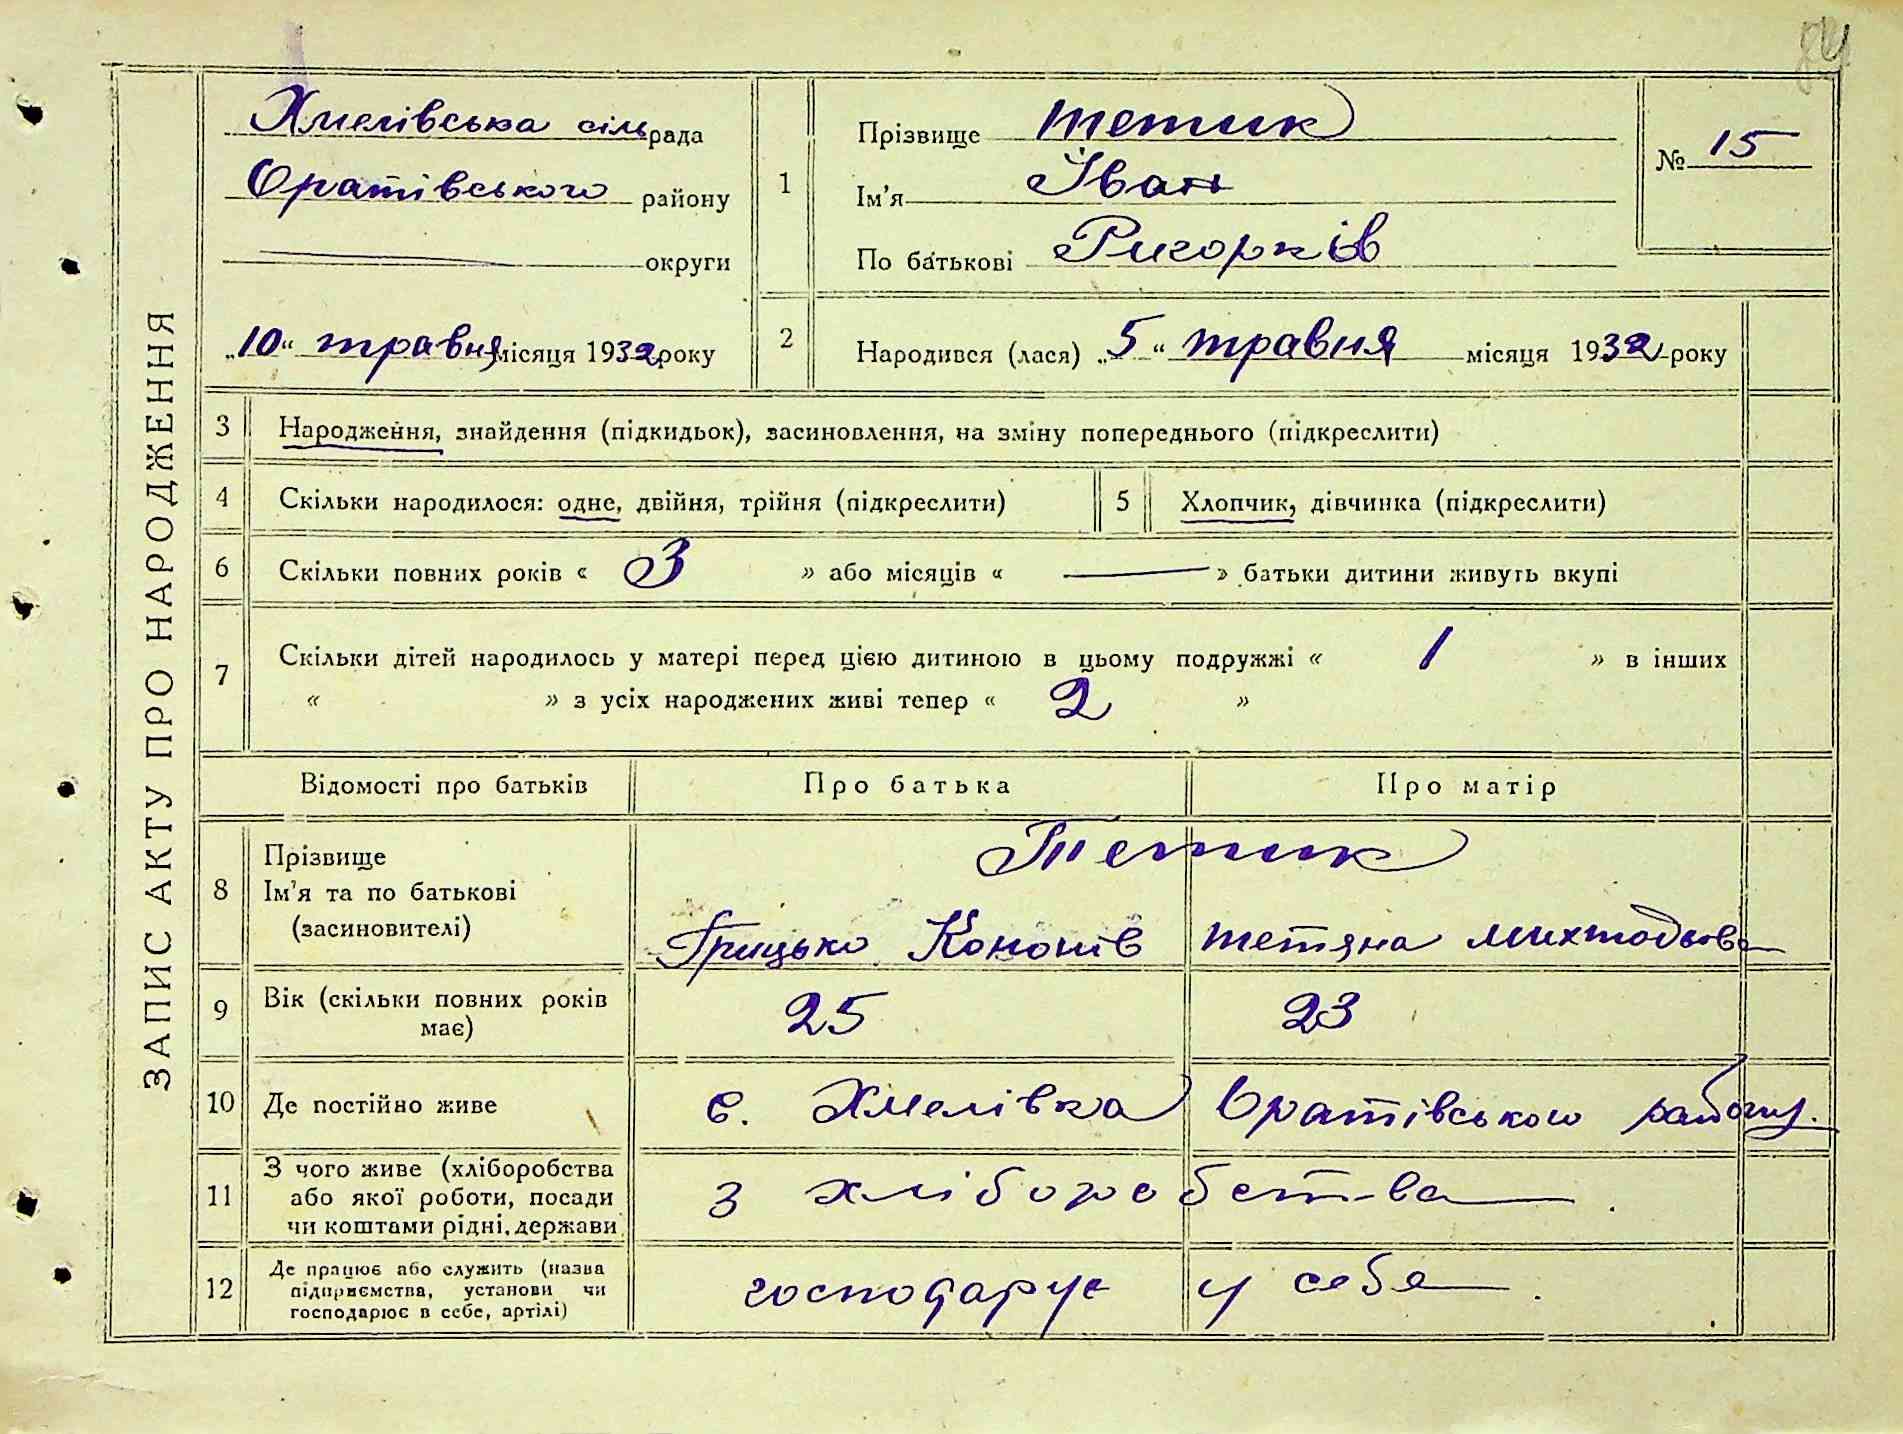 84
ЗАПИС АКТУ ПРО НАРОДЖЕННЯ
Хмелівська сільрада
Оратівського району
округи
„10“ травня місяця 1932 року
1
Прізвище Тетик
Ім'я Іван
По батькові Ригорків
№ 15
2
Народився (лася) „5“ травня місяця 1932 року
3 Народження, знайдення (підкидьок), засиновлення, на зміну попереднього (підкреслити)
4 Скільки народилося: одне, двійня, трійня (підкреслити) 5 Хлопчик, дівчинка (підкреслити)
6 Скільки повних років « 3 » або місяців « — » батьки дитини живуть вкупі
7 Скільки дітей народилось у матері перед цією дитиною в цьому подружжі « 1 » в інших
« » з усіх народжених живі тепер « 2 »
Відомості про батьків Про батька Про матір
8 Прізвище
Ім'я та по батькові
(засиновителі)
Тетик
Грицько Кононів Тетяна
9 Вік (скільки повних років
має)
25 23
10 Де постійно живе с. Хмелівка Оратівського району.
11 З чого живе (хліборобства
або якої роботи, посади
чи коштами рідні, держави
з хліборобства
12 Де працює або служить (назва
підприємства, установи чи
господарює в себе, артілі)
господарує у себе.